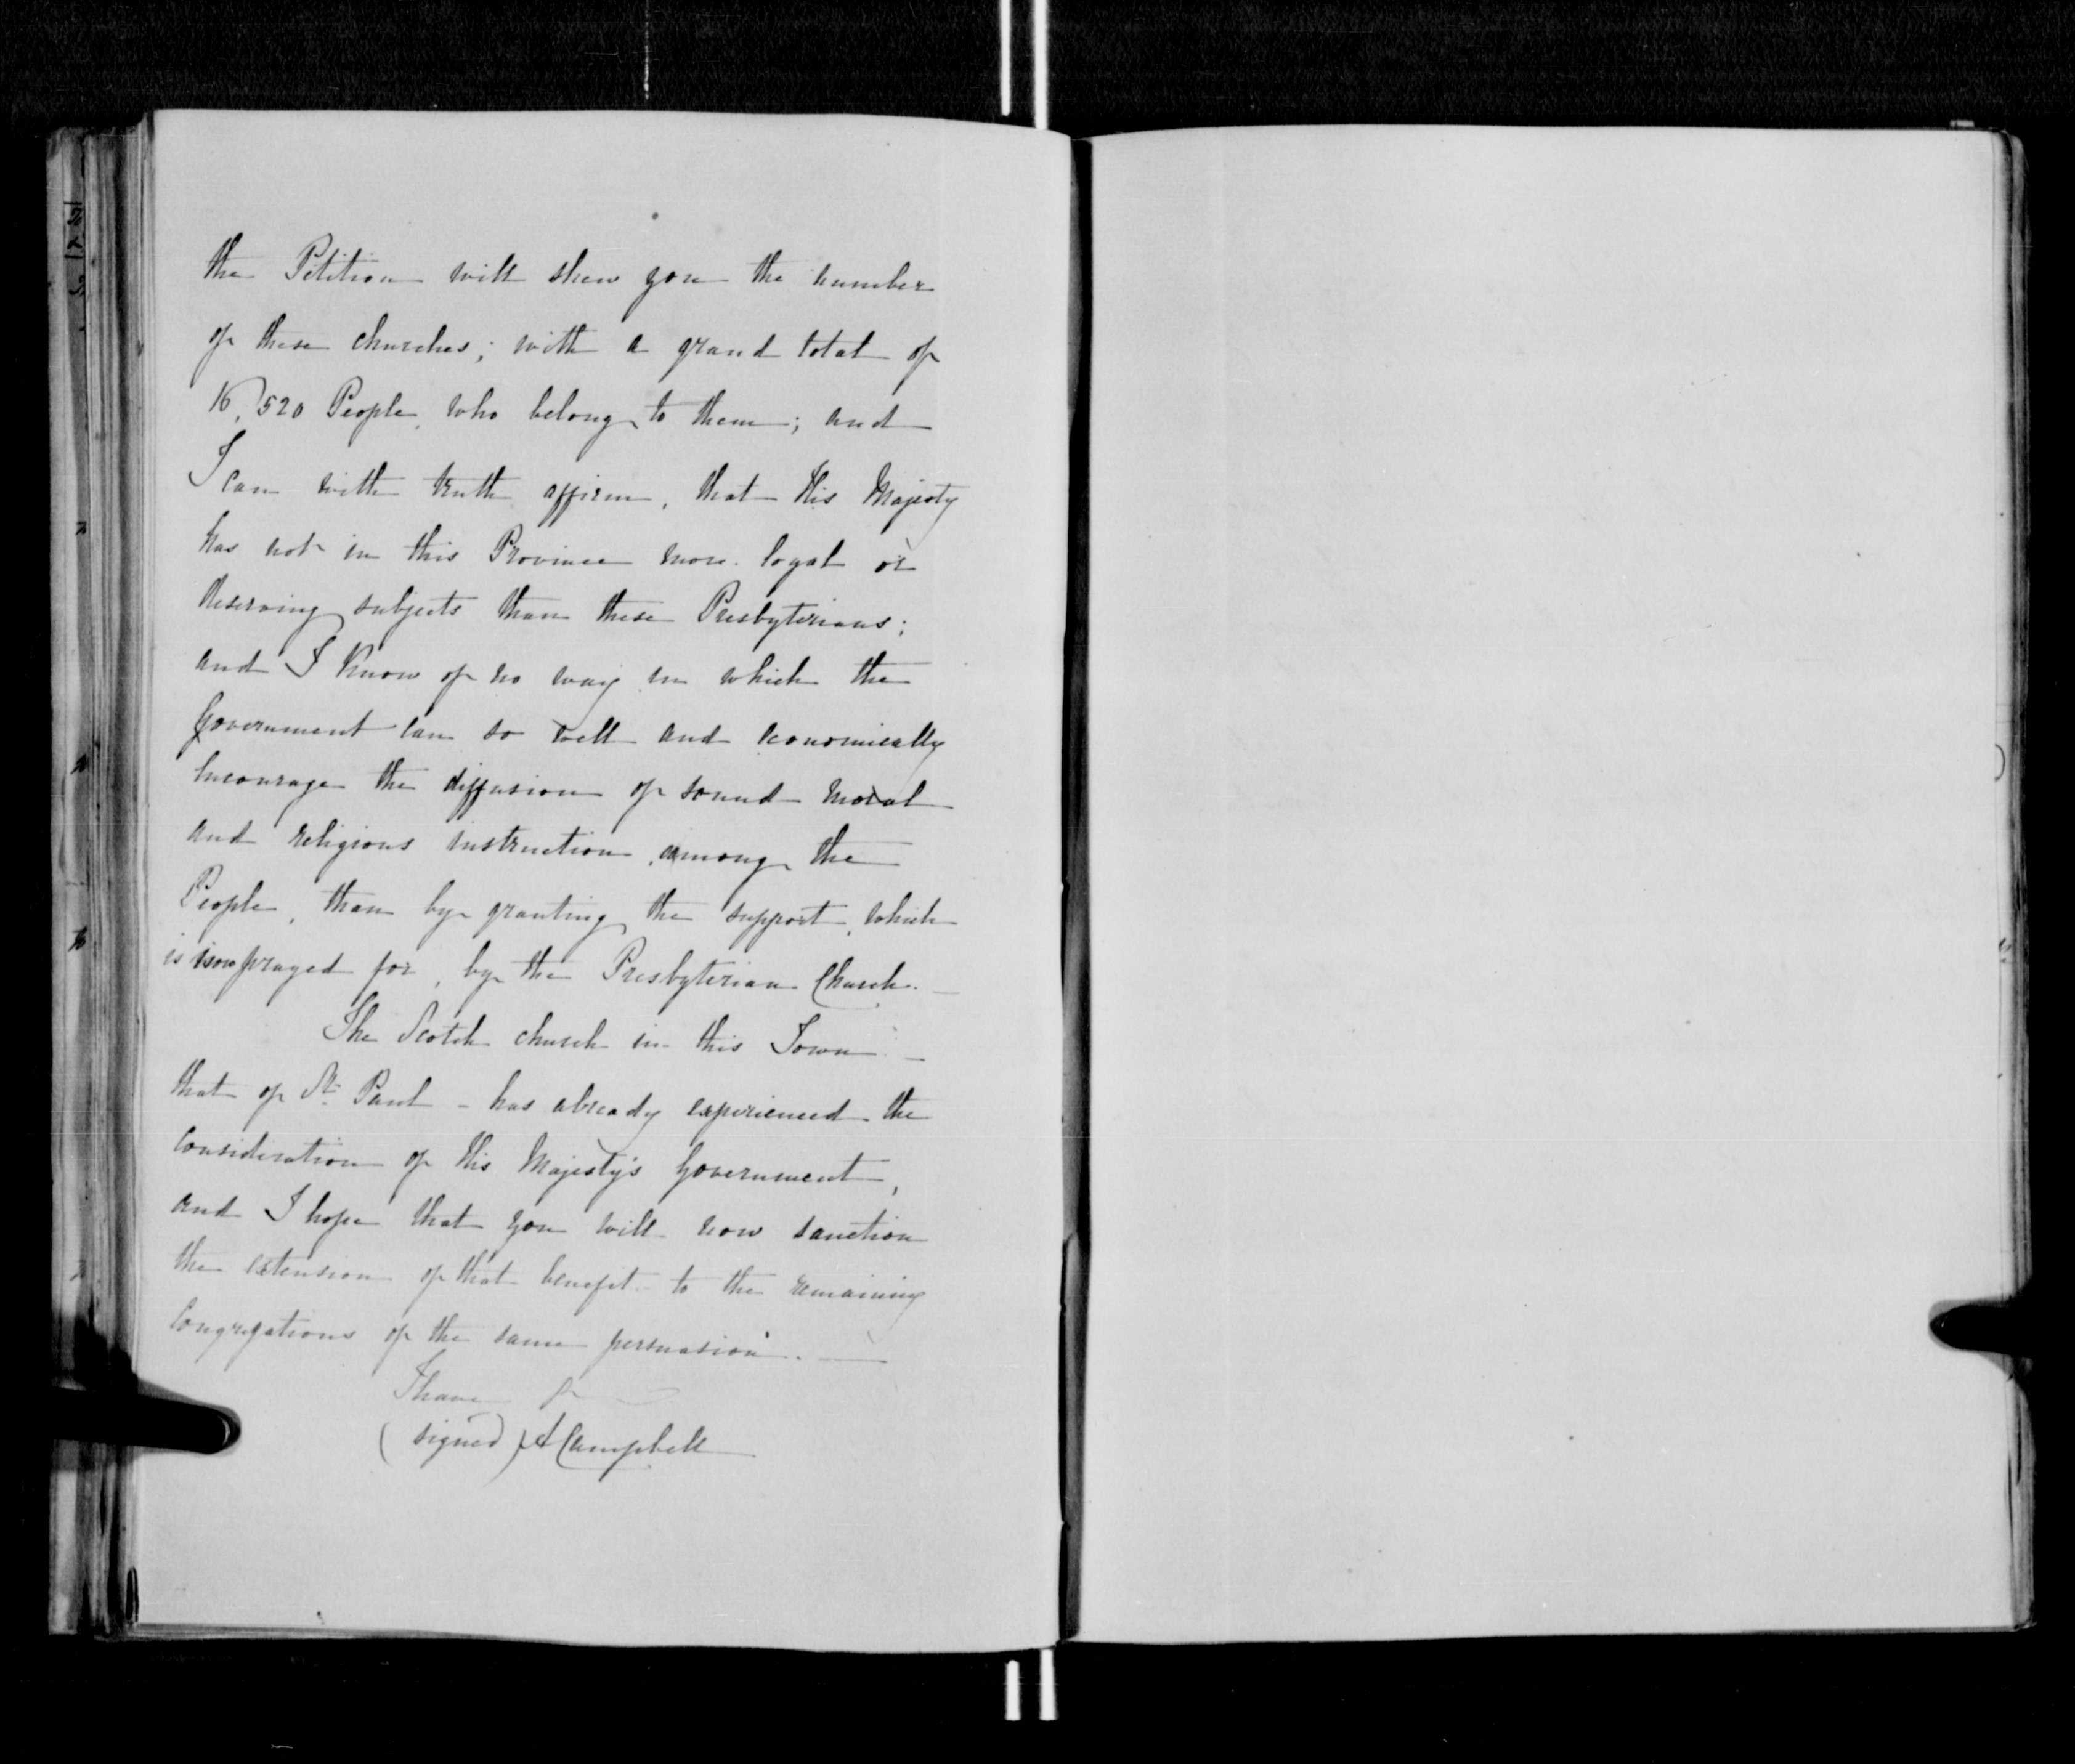 the Petition will shew you the number
of these churches; with a grand total of
16,520 People, who belong to them; and
I can with truth affirm, that His Majesty
has not in this Province more loyal or
deserving subjects than these Presbyterians;
and I know of no way in which the
Government can so well and economically
encourage the diffusion of sound moral
and religious instruction among the
People, than by granting the support, which
is now prayed for, by the Presbyterian Church. —
The Scotch church in this Town —
that of St. Paul - has already experienced the
consideration of His Majesty's Government,
and I hope that you will now sanction
the extension of that benefit to the remaining
congregations of the same persuasion. —
I have &c
(signed) A Campbell